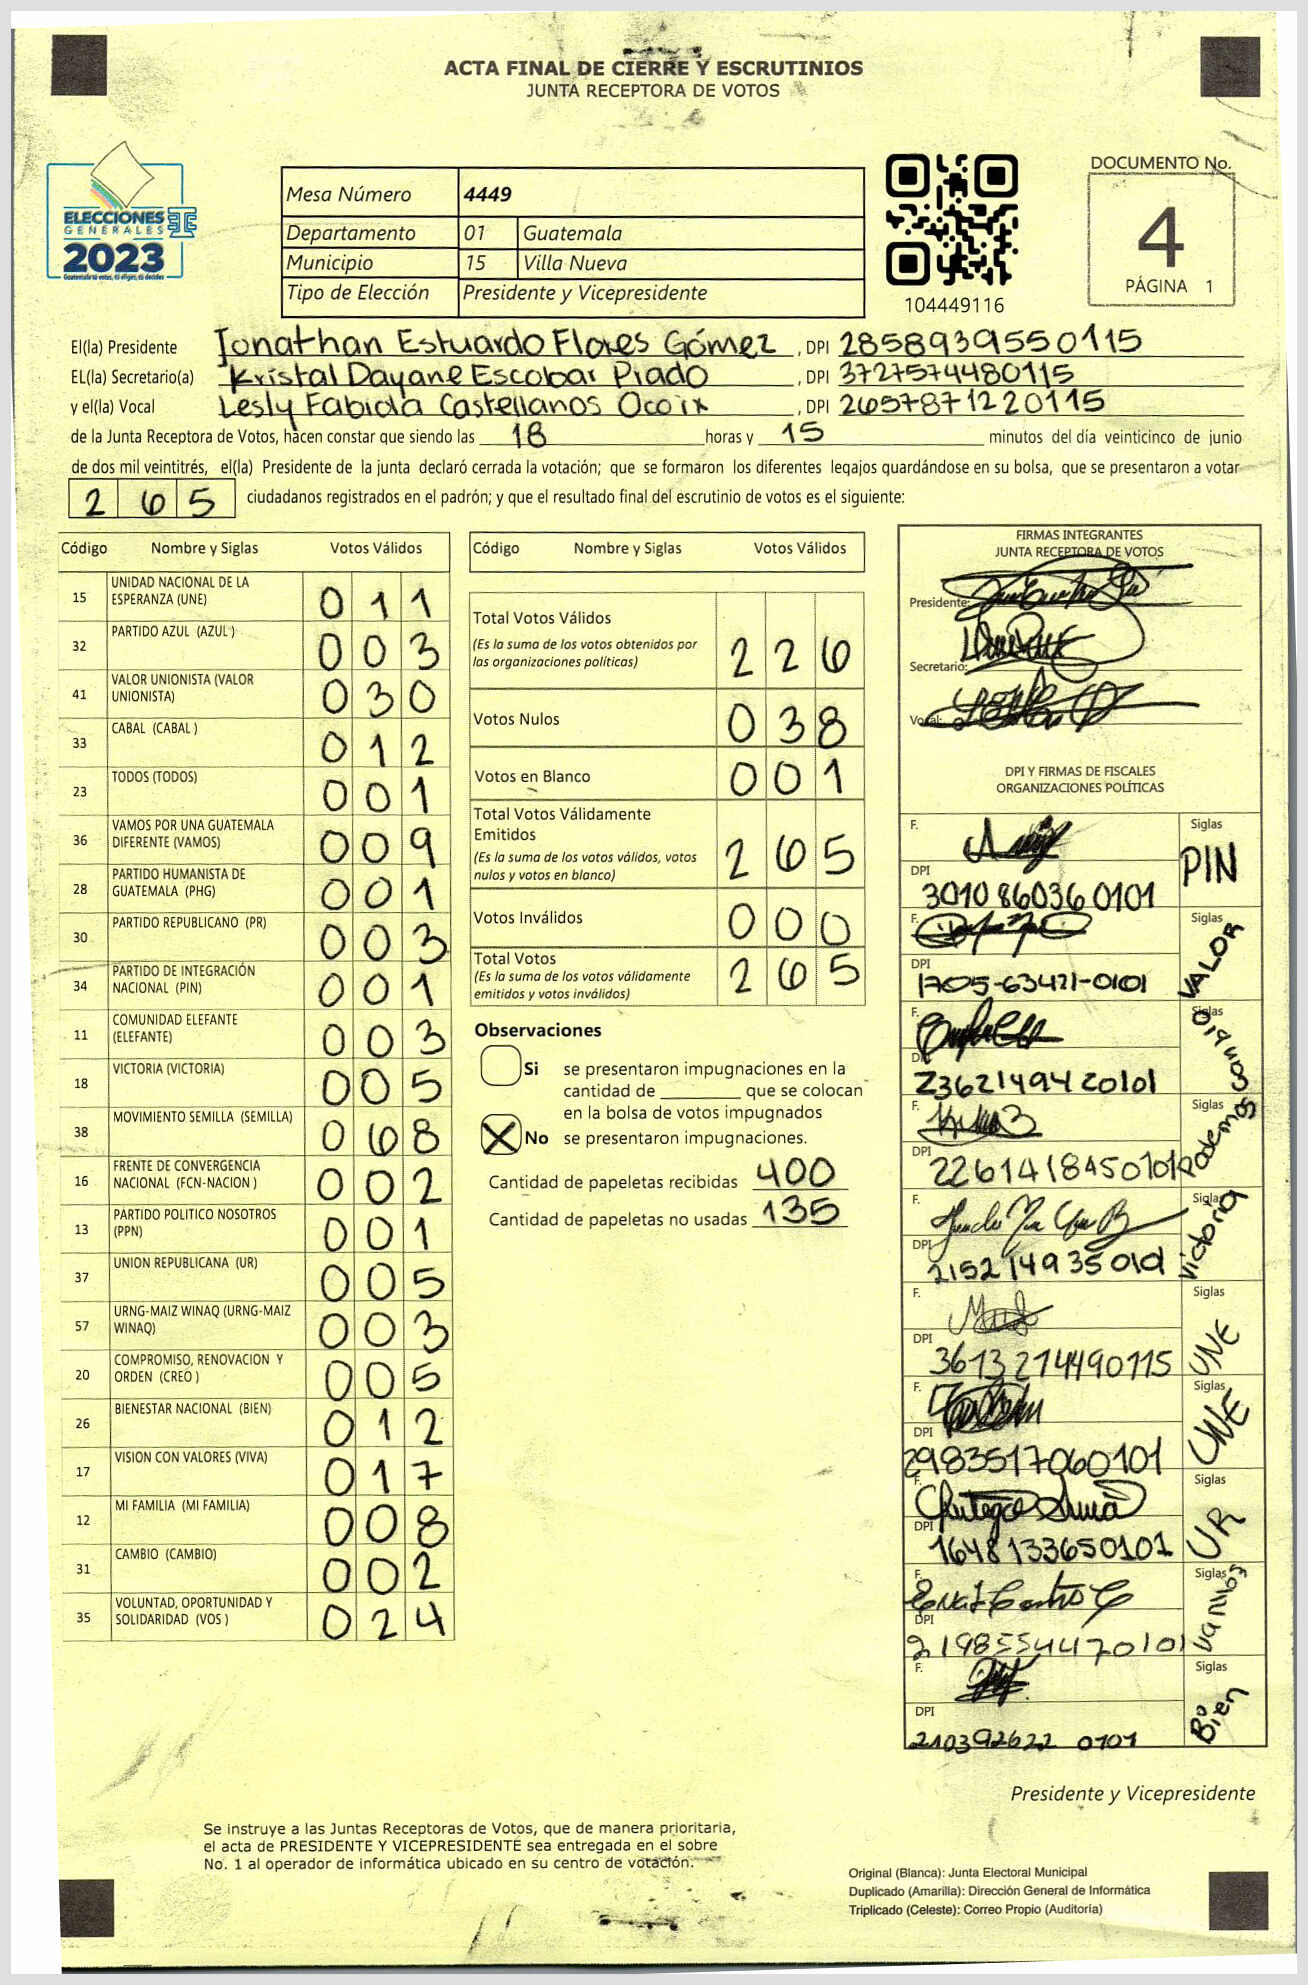 ACTA FINAL DE CIERRE Y ESCRUTINIOS
JUNTA RECEPTORA DE VOTOS
ELECCIONES
GENERALES
2023
Guatemala tú votas, tú eliges, tú decides
Mesa Número 4449
Departamento 01 Guatemala
Municipio 15 Villa Nueva
Tipo de Elección Presidente y Vicepresidente
104449116
DOCUMENTO No.
4
PÁGINA 1
El(la) Presidente Jonathan Estuardo Flores Gómez, DPI 2858939550115
EL(la) Secretario(a) Kristal Dayane Escobar Prado, DPI 3727574480115
y el(la) Vocal Lesly Fabiola Castellanos Ocoix, DPI 2657871220115
de la Junta Receptora de Votos, hacen constar que siendo las 18 horas y 15 minutos del día veinticinco de junio
de dos mil veintitrés, el(la) Presidente de la junta declaró cerrada la votación; que se formaron los diferentes legajos guardándose en su bolsa, que se presentaron a votar
265 ciudadanos registrados en el padrón; y que el resultado final del escrutinio de votos es el siguiente:
Código Nombre y Siglas Votos Válidos
15 UNIDAD NACIONAL DE LA ESPERANZA (UNE) 011
32 PARTIDO AZUL (AZUL ) 003
41 VALOR UNIONISTA (VALOR UNIONISTA) 030
33 CABAL (CABAL ) 012
23 TODOS (TODOS) 001
36 VAMOS POR UNA GUATEMALA DIFERENTE (VAMOS) 009
28 PARTIDO HUMANISTA DE GUATEMALA (PHG) 001
30 PARTIDO REPUBLICANO (PR) 003
34 PARTIDO DE INTEGRACIÓN NACIONAL (PIN) 001
11 COMUNIDAD ELEFANTE (ELEFANTE) 003
18 VICTORIA (VICTORIA) 005
38 MOVIMIENTO SEMILLA (SEMILLA) 068
16 FRENTE DE CONVERGENCIA NACIONAL (FCN-NACION ) 002
13 PARTIDO POLITICO NOSOTROS (PPN) 001
37 UNION REPUBLICANA (UR) 005
57 URNG-MAIZ WINAQ (URNG-MAIZ WINAQ) 003
20 COMPROMISO, RENOVACION Y ORDEN (CREO ) 005
26 BIENESTAR NACIONAL (BIEN) 012
17 VISION CON VALORES (VIVA) 017
12 MI FAMILIA (MI FAMILIA) 008
31 CAMBIO (CAMBIO) 002
35 VOLUNTAD, OPORTUNIDAD Y SOLIDARIDAD (VOS ) 024
Código Nombre y Siglas Votos Válidos
Total Votos Válidos 226
(Es la suma de los votos obtenidos por
las organizaciones políticas)
Votos Nulos 038
Votos en Blanco 001
Total Votos Válidamente
Emitidos 265
(Es la suma de los votos válidos, votos
nulos y votos en blanco)
Votos Inválidos 000
Total Votos 265
(Es la suma de los votos válidamente
emitidos y votos inválidos)
Observaciones
Si se presentaron impugnaciones en la
cantidad de ________ que se colocan
en la bolsa de votos impugnados
X No se presentaron impugnaciones.
Cantidad de papeletas recibidas 400
Cantidad de papeletas no usadas 135
FIRMAS INTEGRANTES
JUNTA RECEPTORA DE VOTOS
Presidente:
Secretario:
Vocal:
DPI Y FIRMAS DE FISCALES
ORGANIZACIONES POLÍTICAS
F. Siglas PIN
DPI 3010 86036 0101
F. Siglas VALOR
DPI 1705-63421-0101
F. Siglas Cambio
DPI 2362149420101
F. Siglas Podemos
DPI 2261418450101
F. Siglas Victoria
DPI 2152149350101
F. Siglas UNE
DPI 3613274490115
F. Siglas UNE
DPI 2983517060101
F. Siglas UR
DPI 1648133650101
F. Siglas Vamos
DPI 2198554470101
F. Siglas Bien
DPI 210392622 0101
Presidente y Vicepresidente
Se instruye a las Juntas Receptoras de Votos, que de manera prioritaria,
el acta de PRESIDENTE Y VICEPRESIDENTE sea entregada en el sobre
No. 1 al operador de informática ubicado en su centro de votación.
Original (Blanca): Junta Electoral Municipal
Duplicado (Amarilla): Dirección General de Informática
Triplicado (Celeste): Correo Propio (Auditoría)